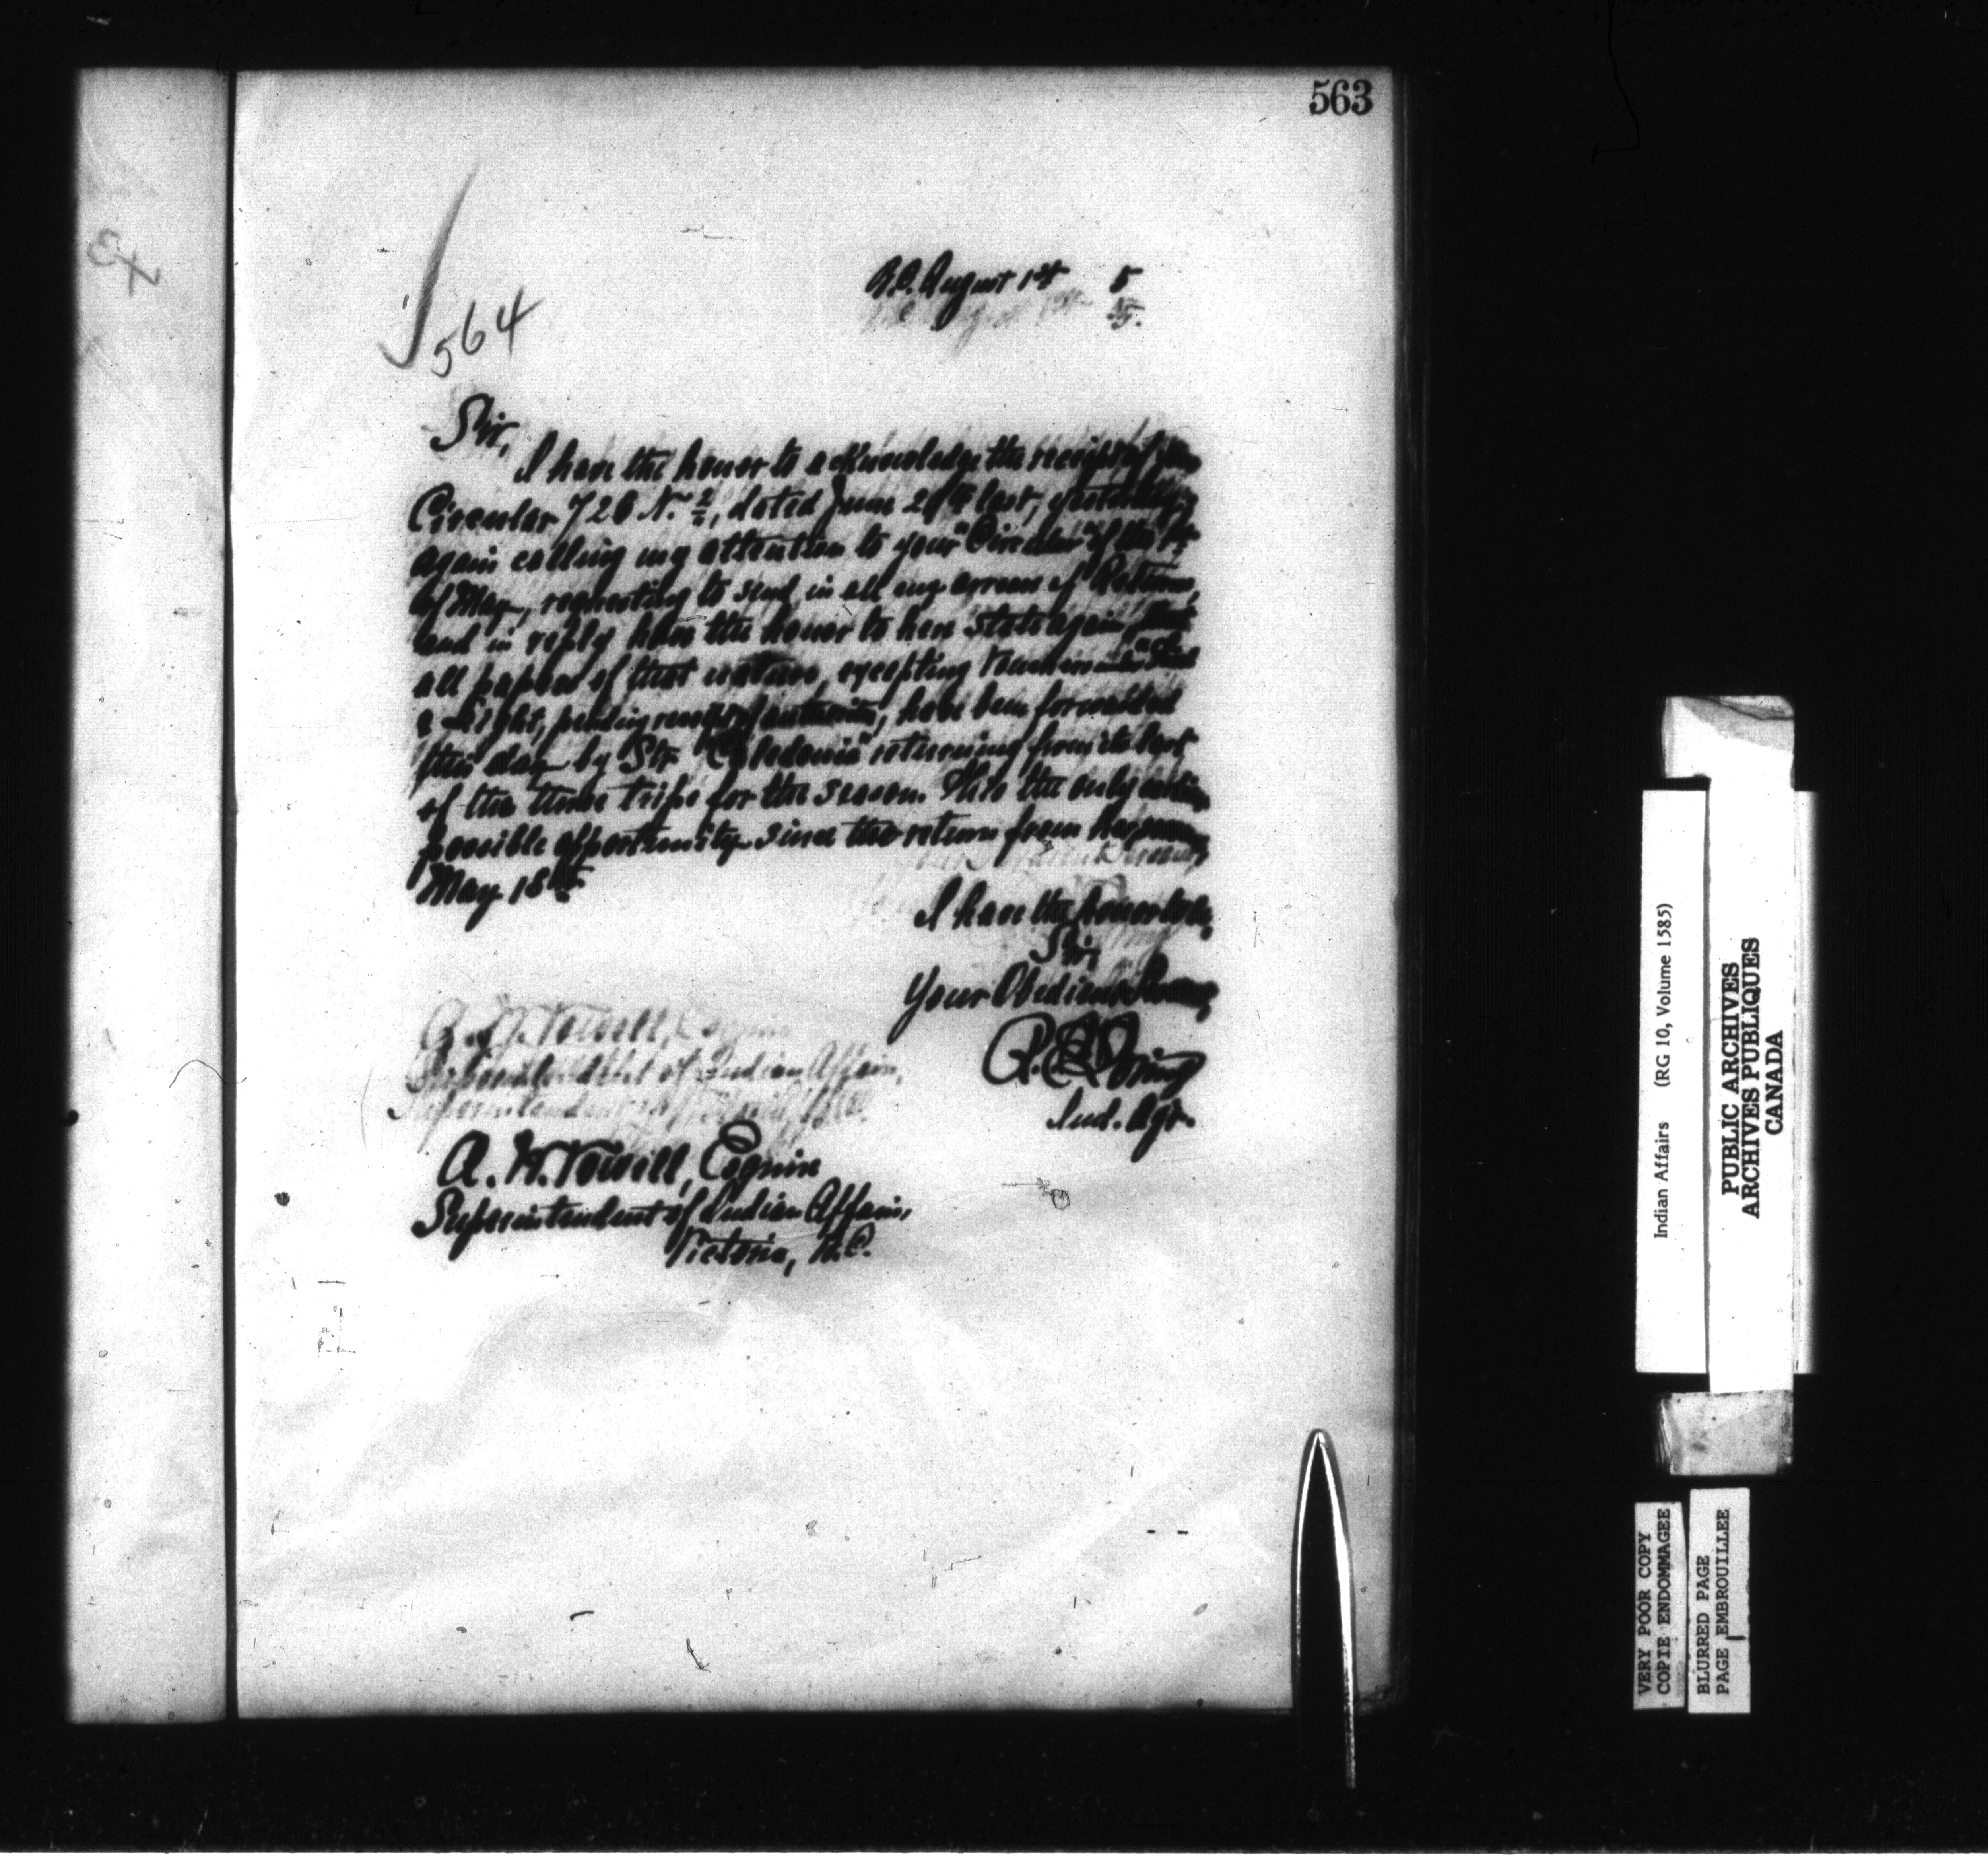 563
Ex
564
B.C. August 1st 5
Sir,
I have the honor to acknowledge the receipt of your
Circular 726 N. 2, dated June 20th last, yesterday,
again calling my attention to your "Circular" of the
of May, requesting to send in all my arrears of Returns,
and in reply have the honor to here state again, that
all papers of that nature, excepting
a Light, pending receipt of authority, have been forwarded
this day by Str "Caledonia" returning from its last
of the three trips for the season. This the only
possible opportunity since the return from
May 18th.
I have the honor to be,
Sir,
Your Obedient Servant,
R.E. Loring
Ind. Agt.
A. W. Vowell, Esquire
Superintendent of Indian Affairs,
Victoria, B.C.
Indian Affairs (RG 10, Volume 1585)
PUBLIC ARCHIVES
ARCHIVES PUBLIQUES
CANADA
VERY POOR COPY
COPIE ENDOMMAGEE
BLURRED PAGE
PAGE EMBROUILLEE